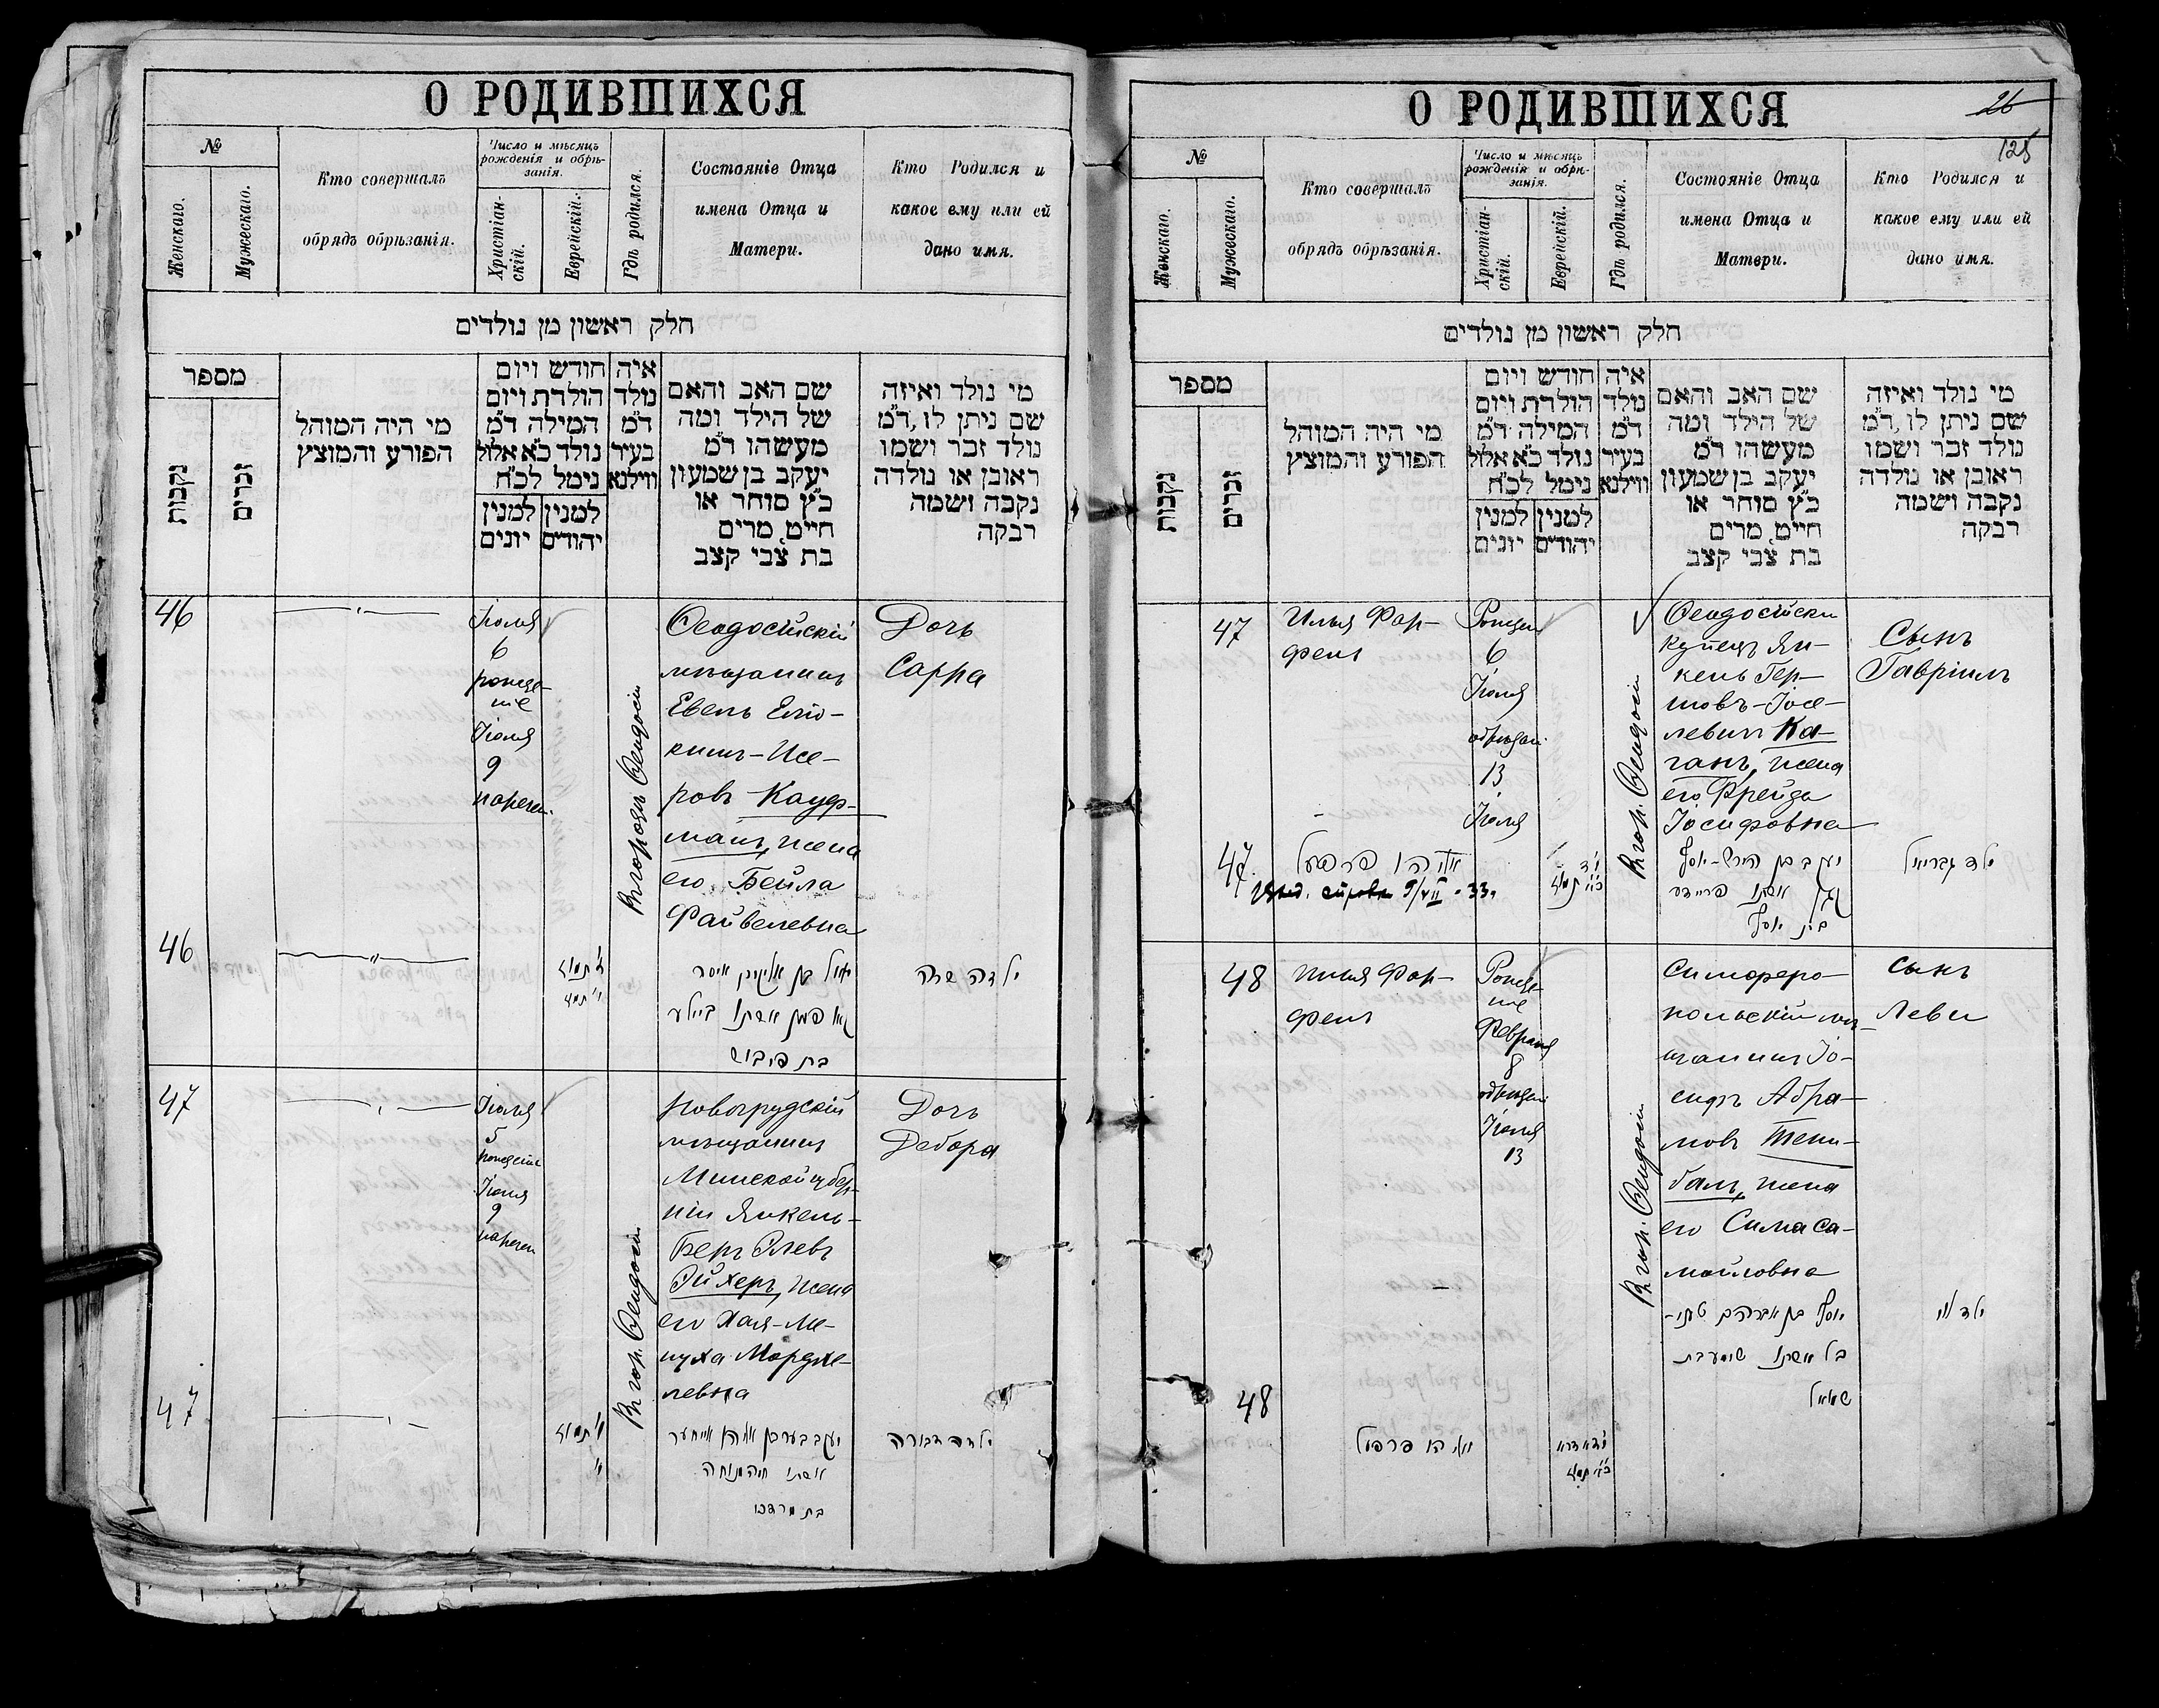 О РОДИВШИХСЯ
№
Женскаго.
Мужескаго.
Кто совершалъ
обрядъ обрѣзанія.
Число и мѣсяцъ
рожденія и обрѣ-
занія.
Христіан-
скій.
Еврейскій.
Гдѣ родился.
Состояніе Отца
имена Отца и
Матери.
Кто Родился и
какое ему или ей
дано имя.
חלק ראשון מן נולדים
מספר
נקבות
זכרים
מי היה המוהל
הפורע והמוצץ
חודש ויום
הולדת ויום
המילה ד״מ
נולד כ״א אלול
נימל לכ״ח
למנין
יהודים
למנין
יונים
איה
נולד
ד״מ
בעיר
ווילנא
שם האב והאם
של הילד ומה
מעשהו ד״מ
יעקב בן שמעון
כ״ץ סוחר או
חייט, מרים
בת צבי קצב
מי נולד ואיזה
שם ניתן לו, ד״מ
נולד זכר ושמו
ראובן או נולדה
נקבה ושמה
רבקה
46
Іюля
6
рожде-
ніе
Іюля
9
наречен.
Въ городѣ Ѳеодосіи
Ѳеодосійскій
мѣщанинъ
Евель Еліо-
кимъ-Исе-
ровъ Кауф-
манъ, жена
его Бейла
Файвелевна
Дочь
Сарра
46
בת פייבוש
ילדה שרה
47
Іюля
5
рожденіе
Іюля
9
наречен
Въ гор. Ѳеодосіи
Новогрудскій
мѣщанинъ
Минской губер-
ніи Янкель-
Беръ
Эйхеръ, жена
его Хая-Ме-
нуха Мордхе-
левна
Дочь
Дебора
47
יעקב בער בן אהרן אייחער
אשתו חיה מנוחה
בת מרדכי
ילדה דבורה
О РОДИВШИХСЯ
26
125
№
Женскаго.
Мужескаго.
Кто совершалъ
обрядъ обрѣзанія.
Число и мѣсяцъ
рожденія и обрѣ-
занія.
Христіан-
скій.
Еврейскій.
Гдѣ родился.
Состояніе Отца
имена Отца и
Матери.
Кто Родился и
какое ему или ей
дано имя.
חלק ראשון מן נולדים
מספר
נקבות
זכרים
מי היה המוהל
הפורע והמוצץ
חודש ויום
הולדת ויום
המילה ד״מ
נולד כ״א אלול
נימל לכ״ח
למנין
יהודים
למנין
יונים
איה
נולד
ד״מ
בעיר
ווילנא
שם האב והאם
של הילד ומה
מעשהו ד״מ
יעקב בן שמעון
כ״ץ סוחר או
חייט, מרים
בת צבי קצב
מי נולד ואיזה
שם ניתן לו, ד״מ
נולד זכר ושמו
ראובן או נולדה
נקבה ושמה
רבקה
47
Илья Фар-
фель
Рожден
6
Іюля
обрѣзан.
13
Іюля
Въ гор. Ѳеодосіи
Ѳеодосійски
купецъ Ян-
кель Гер-
шовъ-Іосе-
левичъ Ка-
ганъ, жена
его Фрейда
Іосифовна
Сынъ
Гавріилъ
47
אליהו פרפעל
יעקב בן הירש-יוסף
כהן אשתו פריידע
בת יוסף
ילד גבריאל
48
Илья Фар-
фель
Рожде-
ніе
Февраля
8
обрѣзан.
Іюля
13
Въ гор. Ѳеодосіи
Симферо-
польскій мѣ-
щанинъ Іо-
сифъ Абра-
мовъ Тени-
балъ, жена
его Сима Са-
мойловна
сынъ
Леви
48
אליהו פרפעל
יוסף בן אברהם טעני-
בל אשתו סימע בת
שמואל
ילד לוי